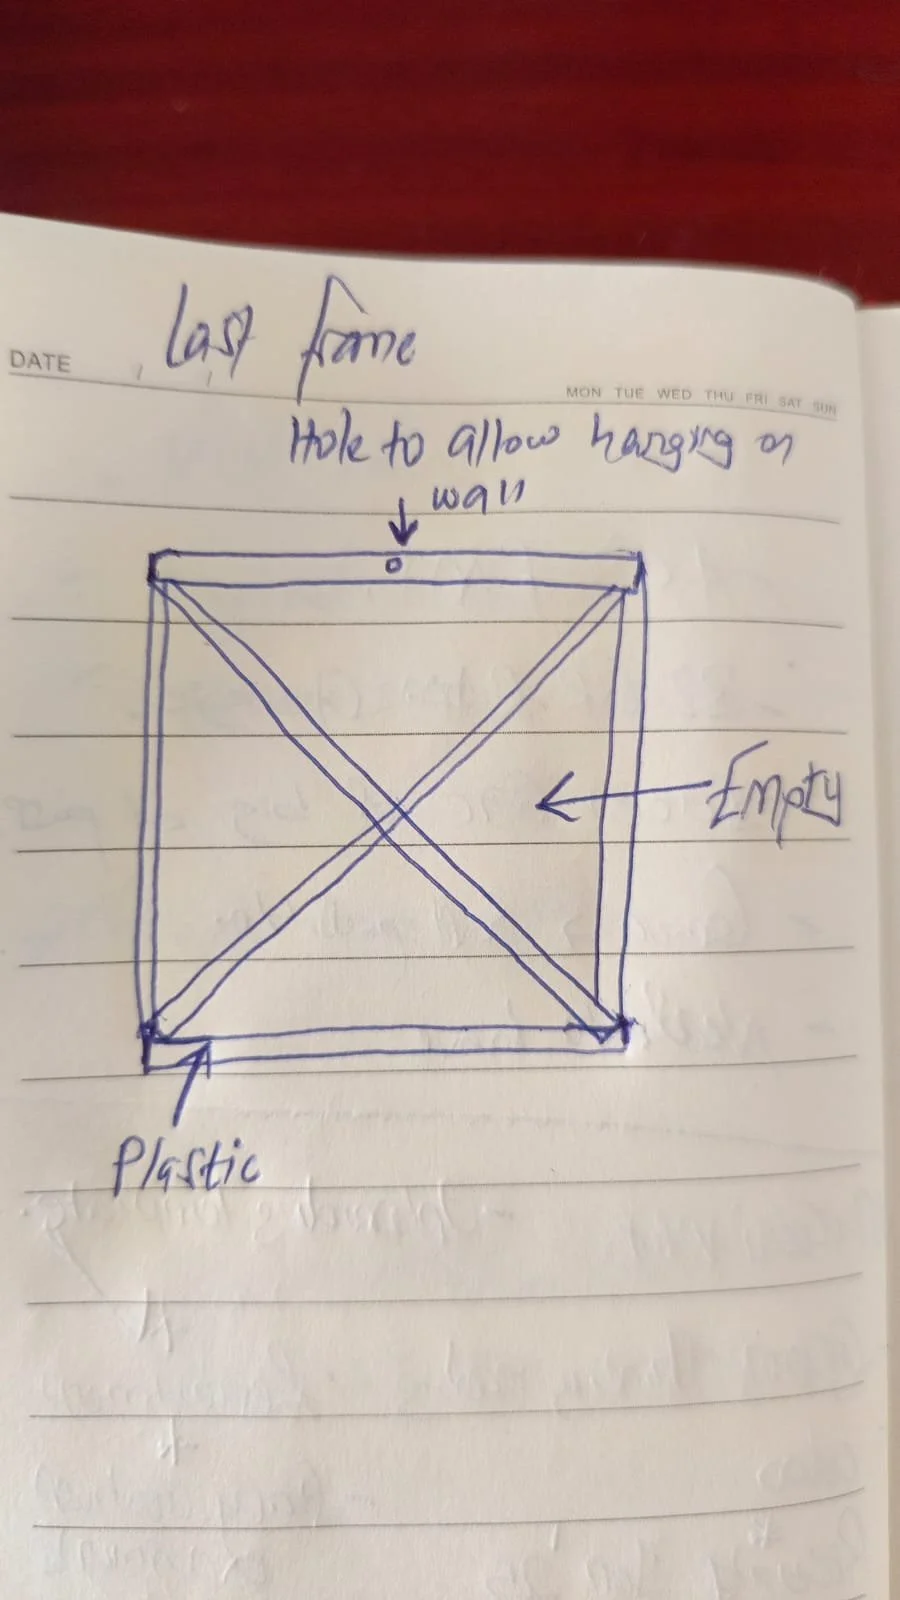 last frame
DATE
MON TUE WED THU FRI SAT SUN
Hole to allow hanging on
wall
Empty
Plastic